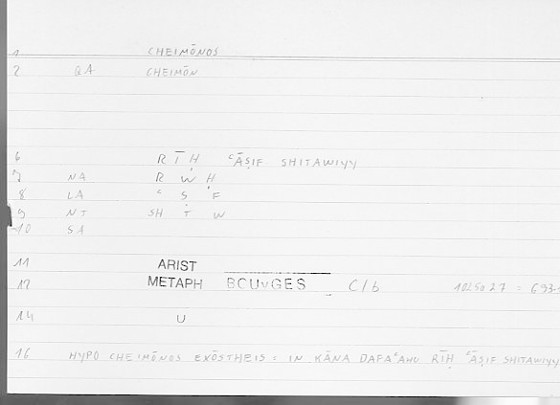 1 CHEIMŌNOS
2 QA CHEIMŌN
6 RĪḤ ʿĀṢIF SHITAWIYY
7 NA R W Ḥ
8 LA ʿ Ṣ F
9 NT SH T W
10 SA
11 ARIST
12 METAPH BOUYGES C/b 1025a27 = 693
14 U
16 HYPO CHEIMŌNOS EXŌSTHEIS = IN KĀNA DAFAʿAHU RĪḤ ʿĀṢIF SHITAWIYY